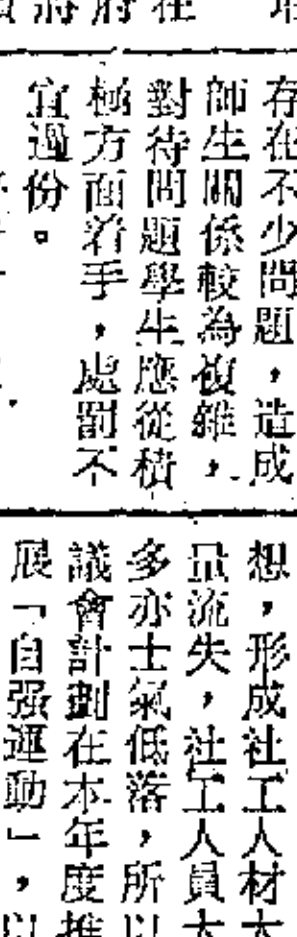 存在不少問題，造成
師生關係較為複雜，
對待問題學生應從積
極方面着手，處罰不
宜過份。
想，形成社工人材大
量流失，社工人員大
多亦士氣低落，所以
議會計劃在本年度推
展「自强運動」，以